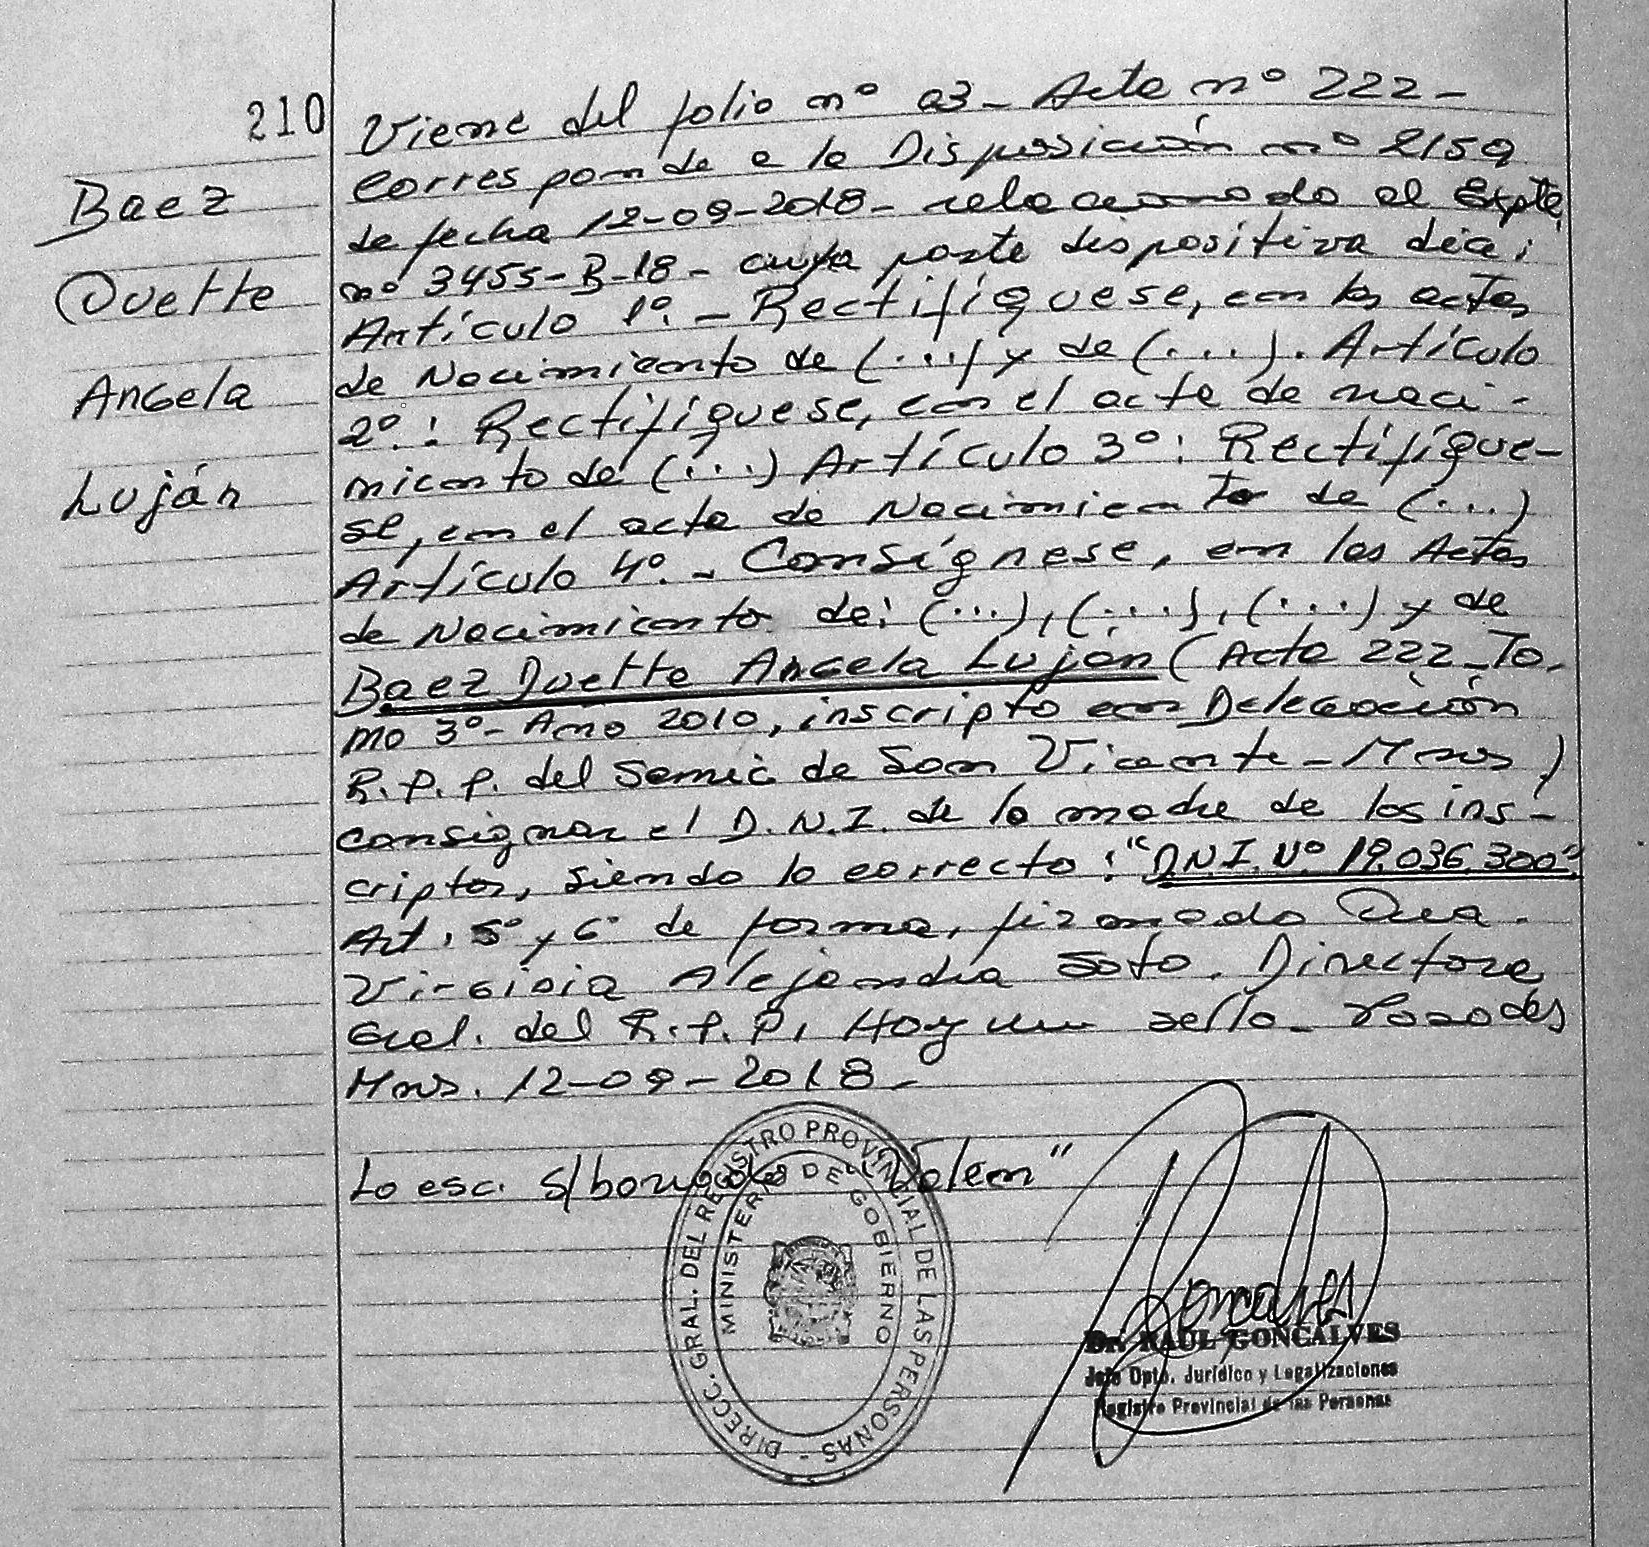 210
Baez
Duette
Angela
Luján
Viene del folio nº 03 - Acta nº 222 -
corresponde a la Disposición nº 2159
de fecha 12-09-2018 - relacionado al Expte.
nº 3455-B-18 - cuya parte dispositiva dice:
Artículo 1º. - Rectifíquese, en las actas
de Nacimiento de (...) y de (...). Artículo
2º.: Rectifíquese, en el acta de naci-
miento de (...) Artículo 3º: Rectifíque-
se, en el acta de Nacimiento de (...)
Artículo 4º. - Consígnese, en las Actas
de Nacimiento de: (...), (...), (...) y de
Baez Duette Angela Luján (Acta 222 - To-
mo 3º - Año 2010, inscripto en Delegación
R.P.P. del Samic de San Vicente - Mnes)
consignar el D.N.I. de la madre de los ins-
criptos, siendo lo correcto: "D.N.I. Nº 19.036.300"
Art. 5º y 6º de forma, firmado Dra.
Virginia Alejandra Soto. Directora
Gral. del R.P.P. Hay un sello - Posadas
Mnes. 12-09-2018 -
Lo esc. s/borrado "Valen"
DIRECC. GRAL. DEL REGISTRO PROVINCIAL DE LAS PERSONAS -
MINISTERIO DE GOBIERNO
Goncalves
Dr. RAUL GONCALVES
Jefe Dpto. Jurídico y Legalizaciones
Registro Provincial de las Personas